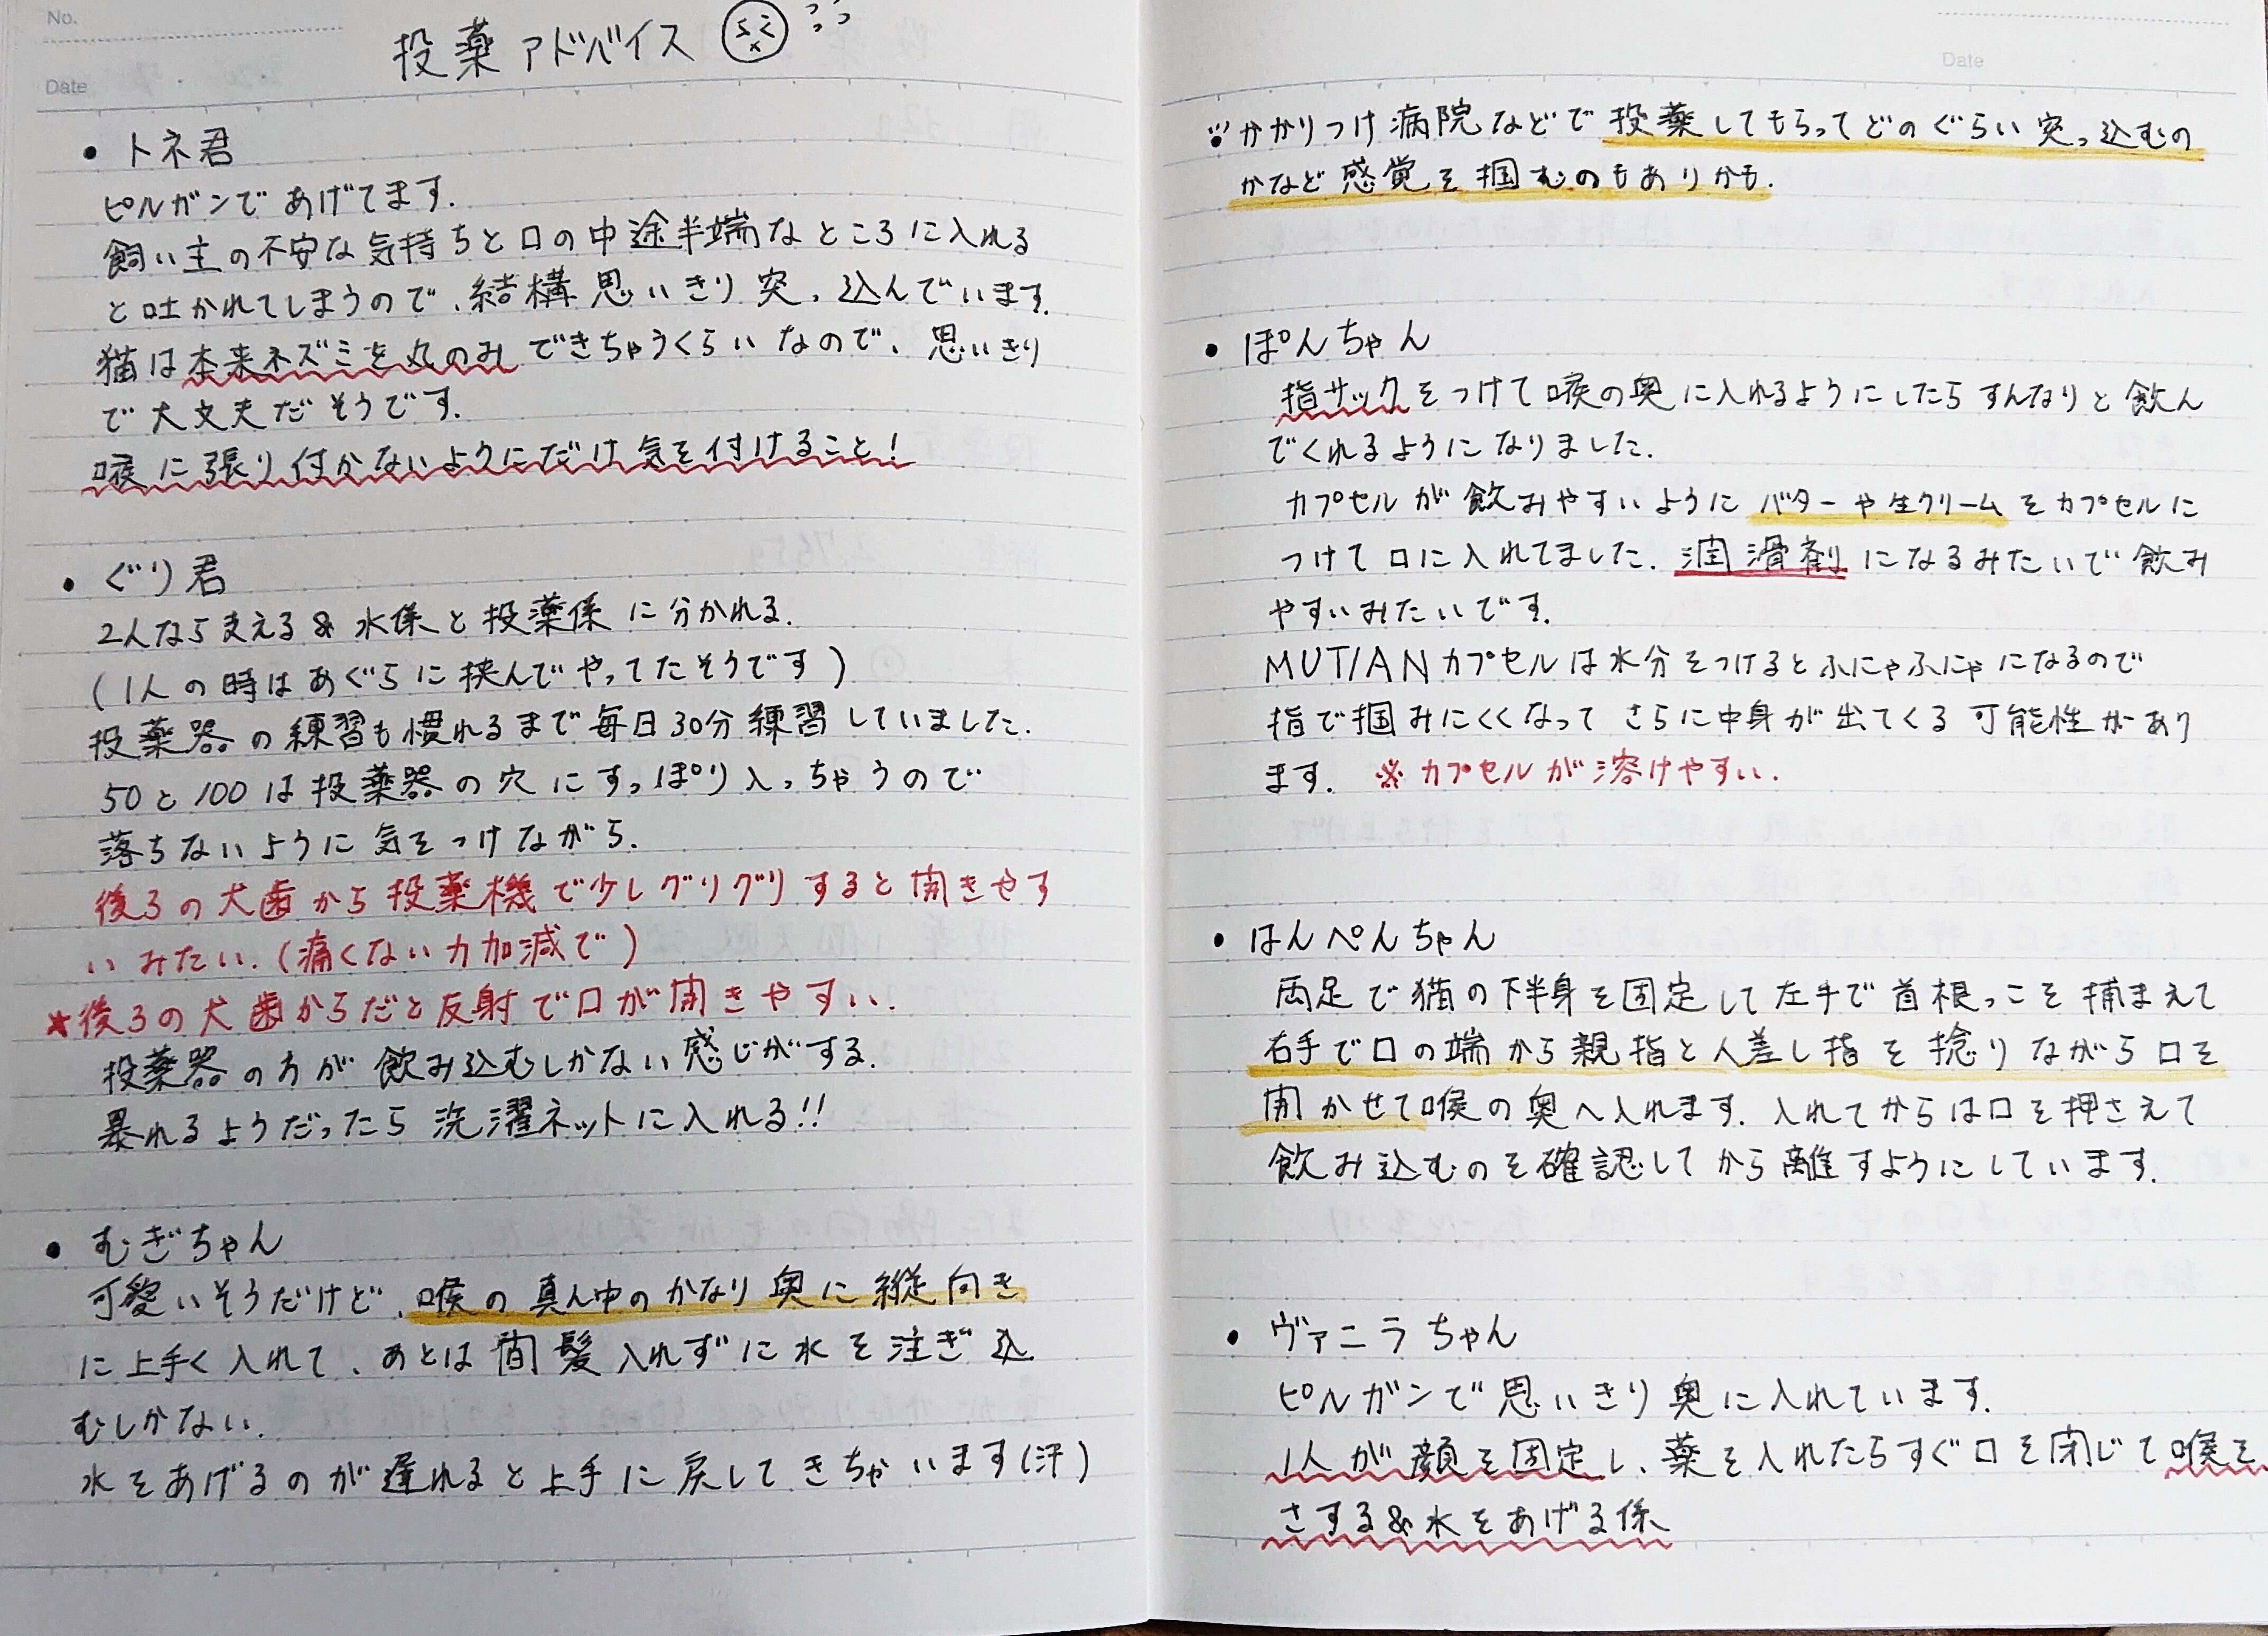 No.
Date
投薬アドバイス
・トネ君
ピルガンであげてます.
飼い主の不安な気持ちと口の中途半端なところに入れる
と吐かれてしまうので、結構思いきり突っ込んでいます.
猫は本来ネズミを丸のみできちゃうくらいなので、思いきり
で大丈夫だそうです.
喉に張り付かないようにだけ気を付けること!
・ぐり君
2人なら支える&水係と投薬係に分かれる.
(1人の時はあぐらに挟んでやってたそうです)
投薬器の練習も慣れるまで毎日30分練習していました.
50と100は投薬器の穴にすっぽり入っちゃうので
落ちないように気をつけながら.
後ろの犬歯から投薬機で少しグリグリすると開きやす
いみたい.(痛くない力加減で)
★後ろの犬歯からだと反射で口が開きやすい.
投薬器の方が飲み込むしかない感じがする.
暴れるようだったら洗濯ネットに入れる!!
・むぎちゃん
可愛いそうだけど、喉の真ん中のかなり奥に縦向き
に上手く入れて、あとは間髪入れずに水を注ぎ込
むしかない.
水をあげるのが遅れると上手に戻してきちゃいます(汗)
Date
かかりつけ病院などで投薬してもらってどのぐらい突っ込むの
かなど感覚を掴むのもありかも.
・ぽんちゃん
指サックをつけて喉の奥に入れるようにしたらすんなりと飲ん
でくれるようになりました.
カプセルが飲みやすいようにバターや生クリームをカプセルに
つけて口に入れてました.潤滑剤になるみたいで飲み
やすいみたいです.
MUTIANカプセルは水分をつけるとふにゃふにゃになるので
指で掴みにくくなってさらに中身が出てくる可能性があり
ます. ※カプセルが溶けやすい.
・はんぺんちゃん
両足で猫の下半身を固定して左手で首根っこを捕まえて
右手で口の端から親指と人差し指を捻りながら口を
開かせて喉の奥へ入れます.入れてからは口を押さえて
飲み込むのを確認してから離すようにしています.
・ヴァニラちゃん
ピルガンで思いきり奥に入れています.
1人が顔を固定し、薬を入れたらすぐ口を閉じて喉を
さする&水をあげる係